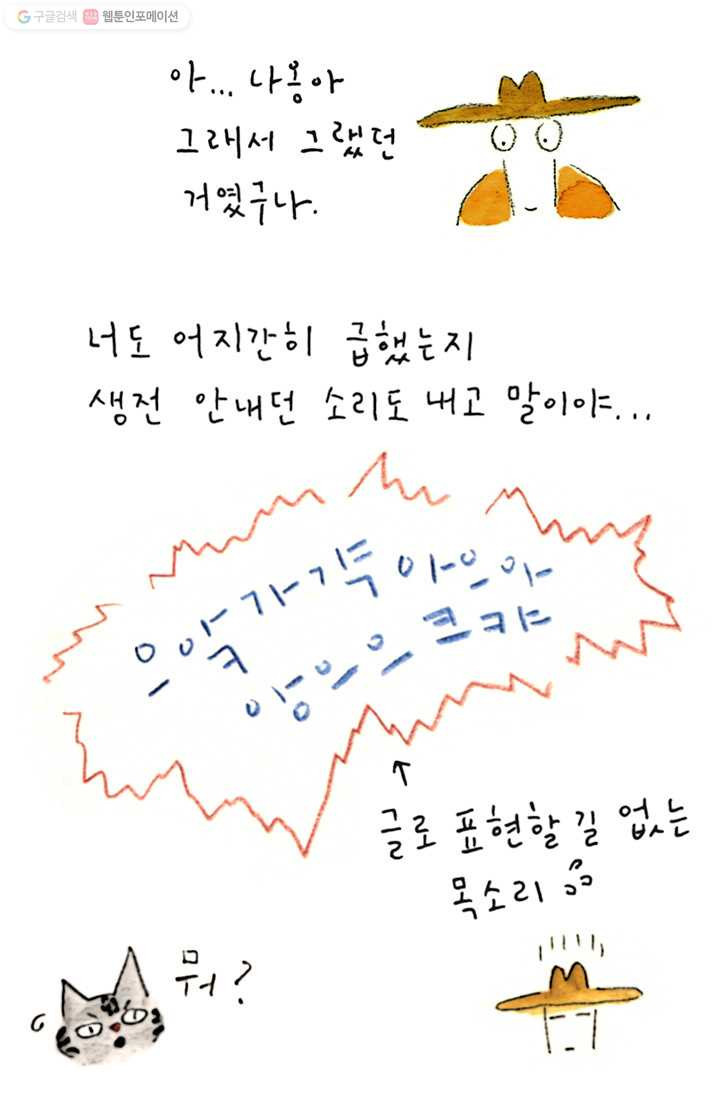 구글검색 웹툰인포메이션
아... 나옹아
그래서 그랬던
거였구나.
너도 어지간히 급했는지
생전 안내던 소리도 내고 말이야...
으악가갹아으아
아앙으으크캬
↑
글로 표현할 길 없는
목소리
뭐?